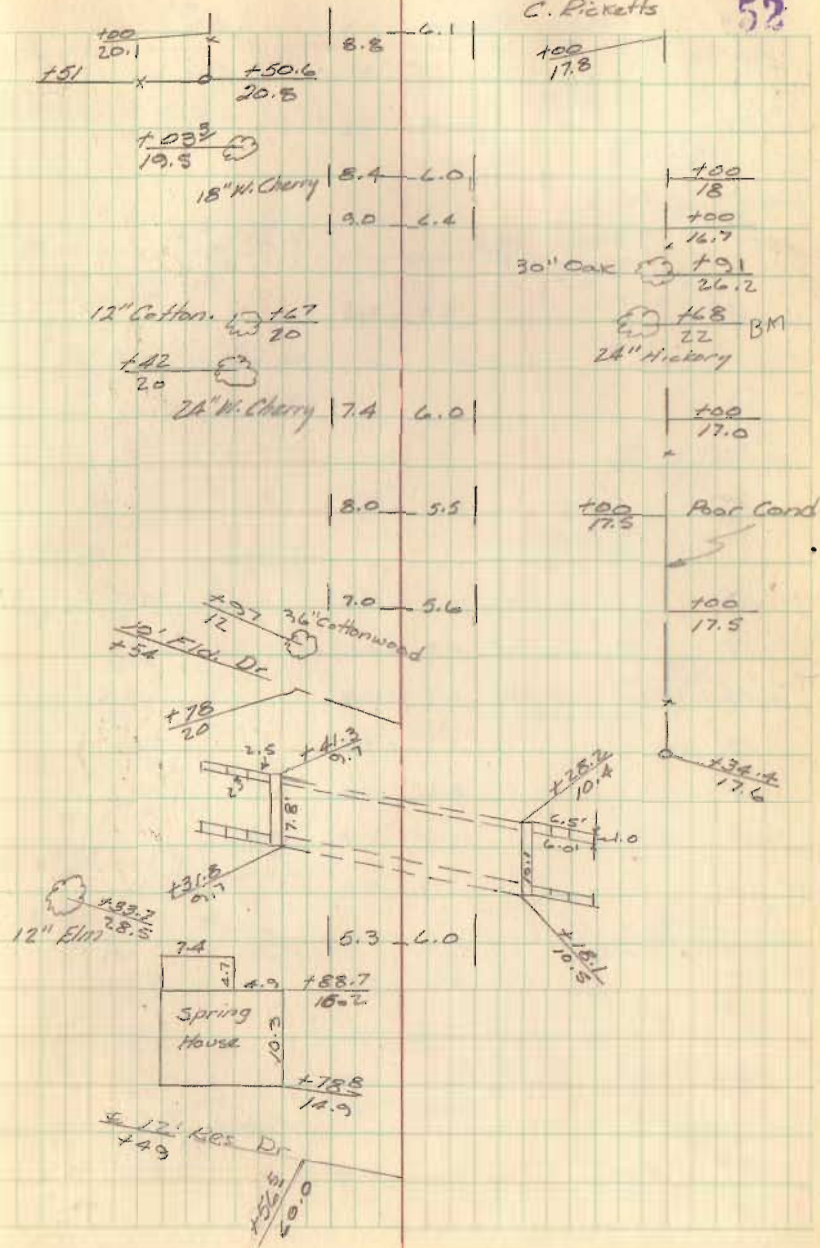 C. Ricketts 52
+00 8.8 6.1 +00
20.1 17.8
+51 +50.6
20.8
+03⁵
19.5
18" W. Cherry 8.4 6.0 +00
18
9.0 6.4 +00
16.7
30" Oak +91
26.2
12" Cotton. +67 +68 BM
20 22
+42 24" Hickory
20
24" W. Cherry 7.4 6.0 +00
17.0
8.0 5.5 +00 Poor Cond
17.5
7.0 5.6 +00
17.5
+97 36" Cottonwood
12
10' Fld. Dr
+54
+78
20
2.5 +41.3 +28.2 +34.4
9.7 10.4 17.6
7.8' 6.5' 1.0
6.0'
10.1
+31.8
9.7
+33.2
28.5
12" Elm 5.3 6.0 +18.1
10.5
7.4
4.7 4.9 +88.7
Spring
House 10.3
+78.8
14.9
12' Res Dr
+49
+56.5
60.0